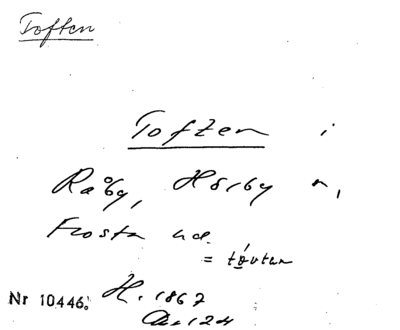 Toften
Toften i
Råby, Hörby sn,
Frosta hd.
= tòutan
Nr 10446. H. 1867